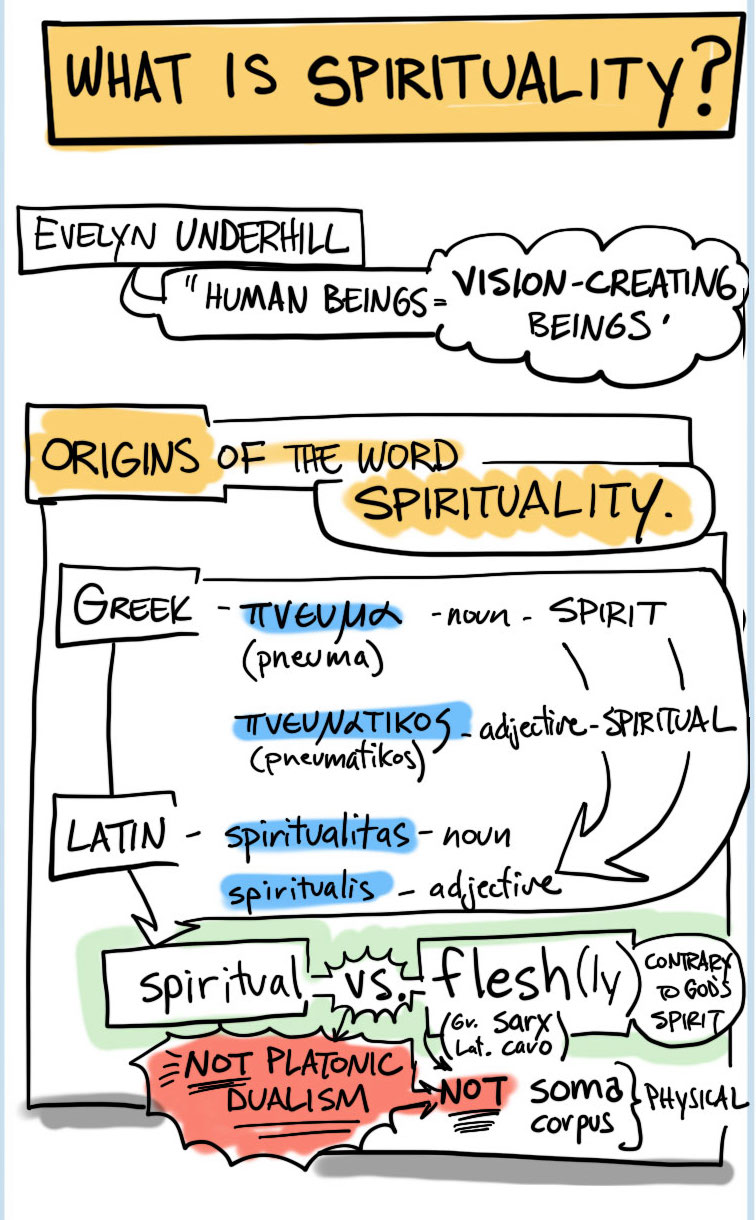 WHAT IS SPIRITUALITY?
EVELYN UNDERHILL
"HUMAN BEINGS = VISION-CREATING
BEINGS'
ORIGINS OF THE WORD
SPIRITUALITY.
GREEK - πνευμα - noun - SPIRIT
(pneuma)
πνευματικος - adjective - SPIRITUAL
(pneumatikos)
LATIN - spiritualitas - noun
spiritualis - adjective
spiritual vs. flesh(ly)
CONTRARY
TO GOD'S
SPIRIT
(Gr. sarx
Lat. caro)
NOT PLATONIC
DUALISM
NOT soma
corpus } PHYSICAL